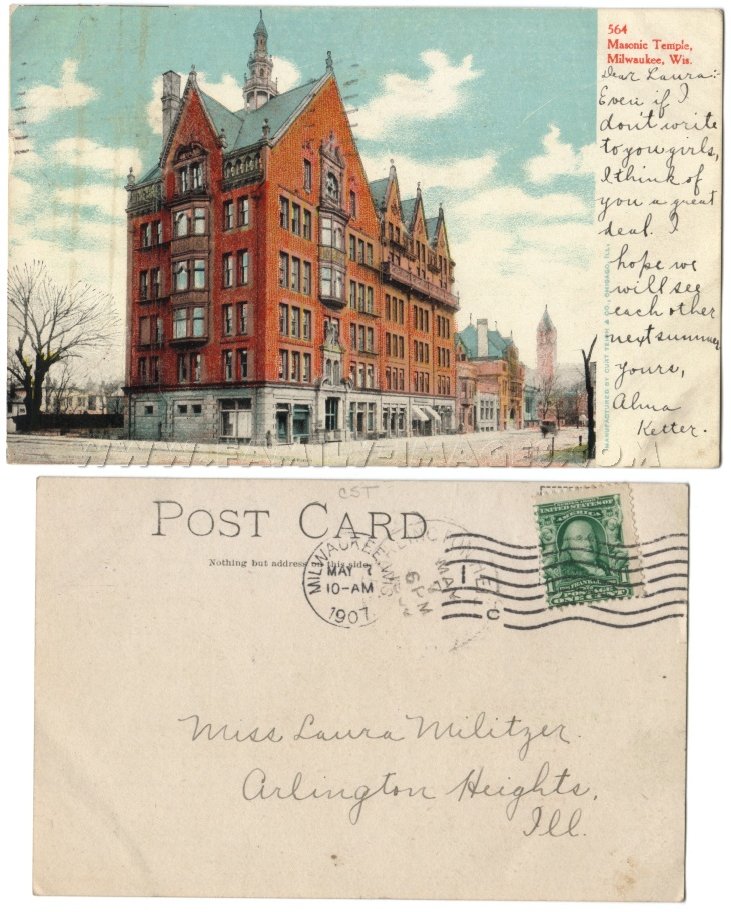 564
Masonic Temple,
Milwaukee, Wis.
Dear Laura:-
Even if I
don't write
to you girls,
I think of
you a great
deal. I
hope we
will see
each other
next summer
Yours,
Alma
Ketter.
MANUFACTURED BY CURT TEICH & CO., CHICAGO, ILL.
WWW.FAMILY-IMAGES.COM
CST
POST CARD
Nothing but address on this side.
MILWAUKEE, WIS.
MAY 7
10-AM
1907
MAY
6 PM
1
C
UNITED STATES OF
AMERICA
FRANKLIN
POSTAGE
ONE CENT
Miss Laura Militzer.
Arlington Heights,
Ill.